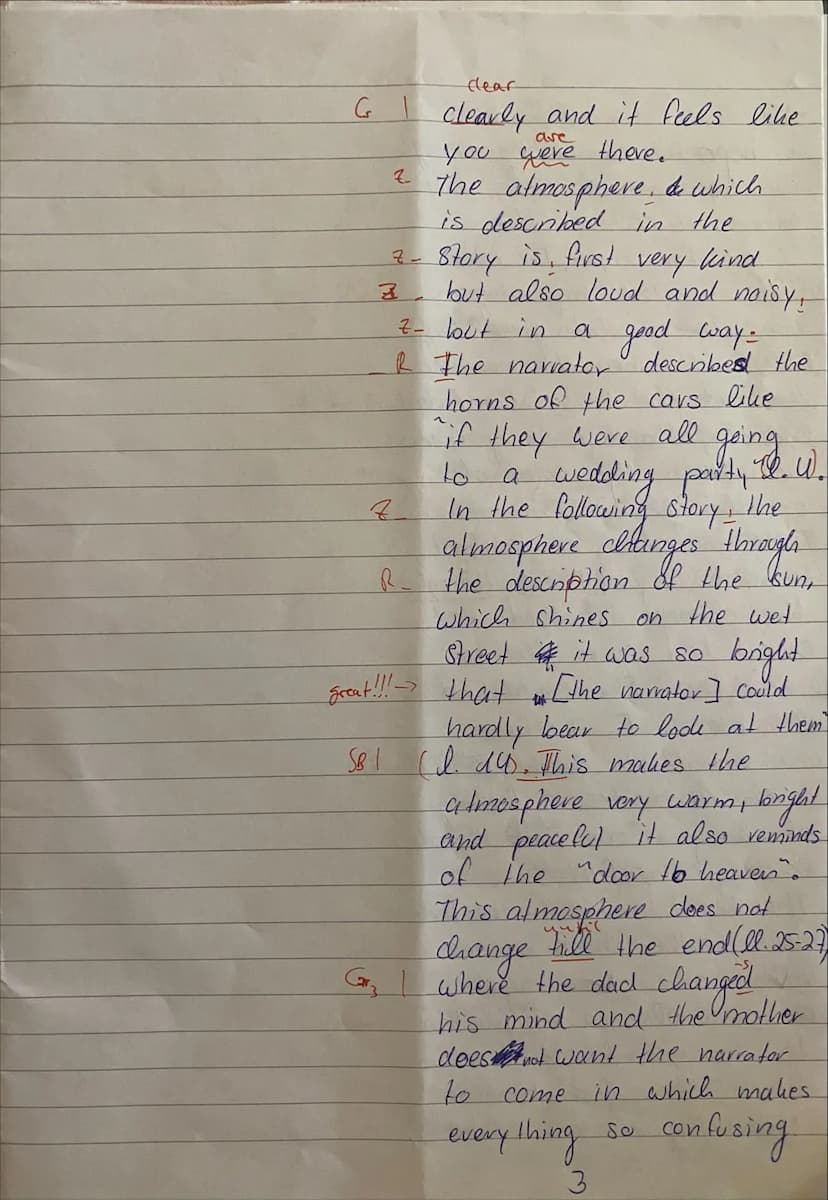 clear
G | clearly and it feels like
are
you were there.
Z The atmosphere, which
is described in the
Z - Story is, first very kind
Z - but also loud and noisy,
Z - but in a good way.
- R The narrator described the
horns of the cars like
"if they were all going
to a wedding party" (l. 4).
Z - In the following story, the
atmosphere changes through
R - the description of the sun,
which shines on the wet
street it was so bright
great!!! → that "[the narrator] could
hardly bear to look at them"
SB | (l. 14). This makes the
atmosphere very warm, bright
and peaceful it also reminds
of the "door to heaven".
This atmosphere does not
until
change till the end (ll. 25-27)
-s
G3 | where the dad changed
his mind and the mother
does not want the narrator
to come in which makes
everything so confusing
3